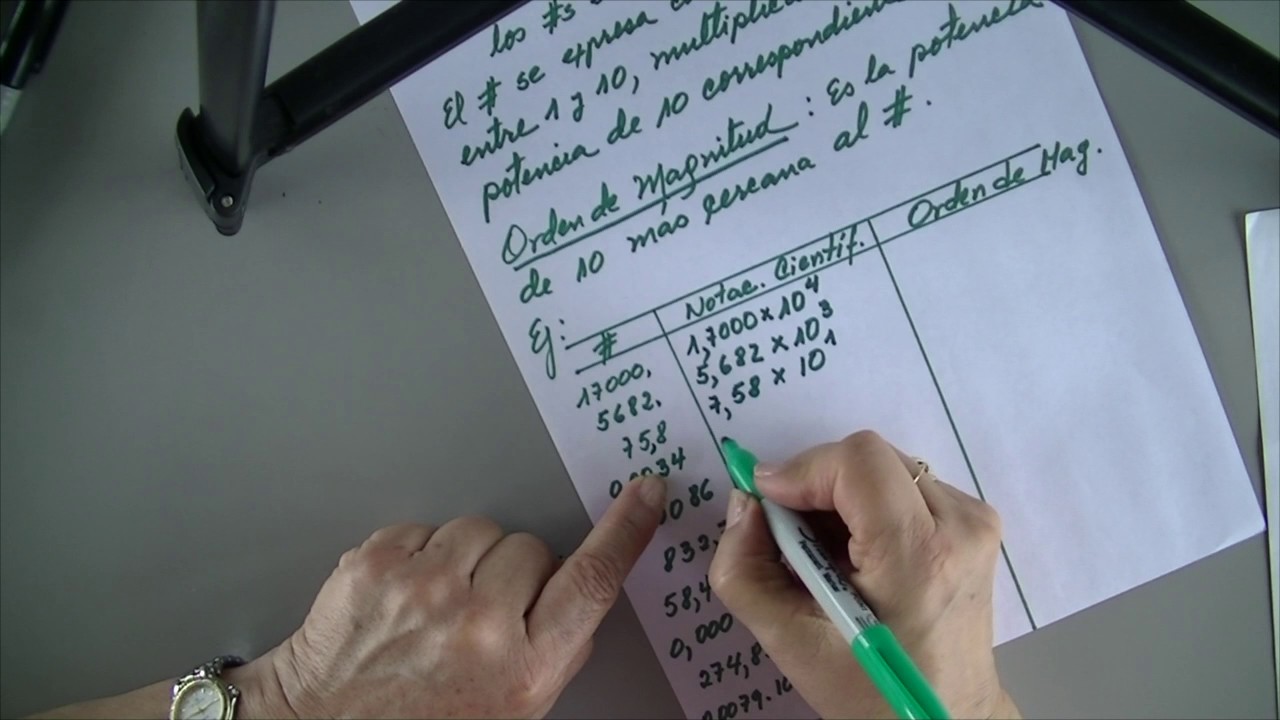 los #s
El # se expresa
entre 1 y 10,
potencia de 10
Orden de Magnitud : Es la potencia
de 10 más cercana al #.
Ej:
# Notac. Científ. Orden de Mag.
17000, 1,7000 x 10⁴
5682. 5,682 x 10³
75,8 7,58 x 10¹
34
086
832,
58,4
0,000
274,8
0079.10